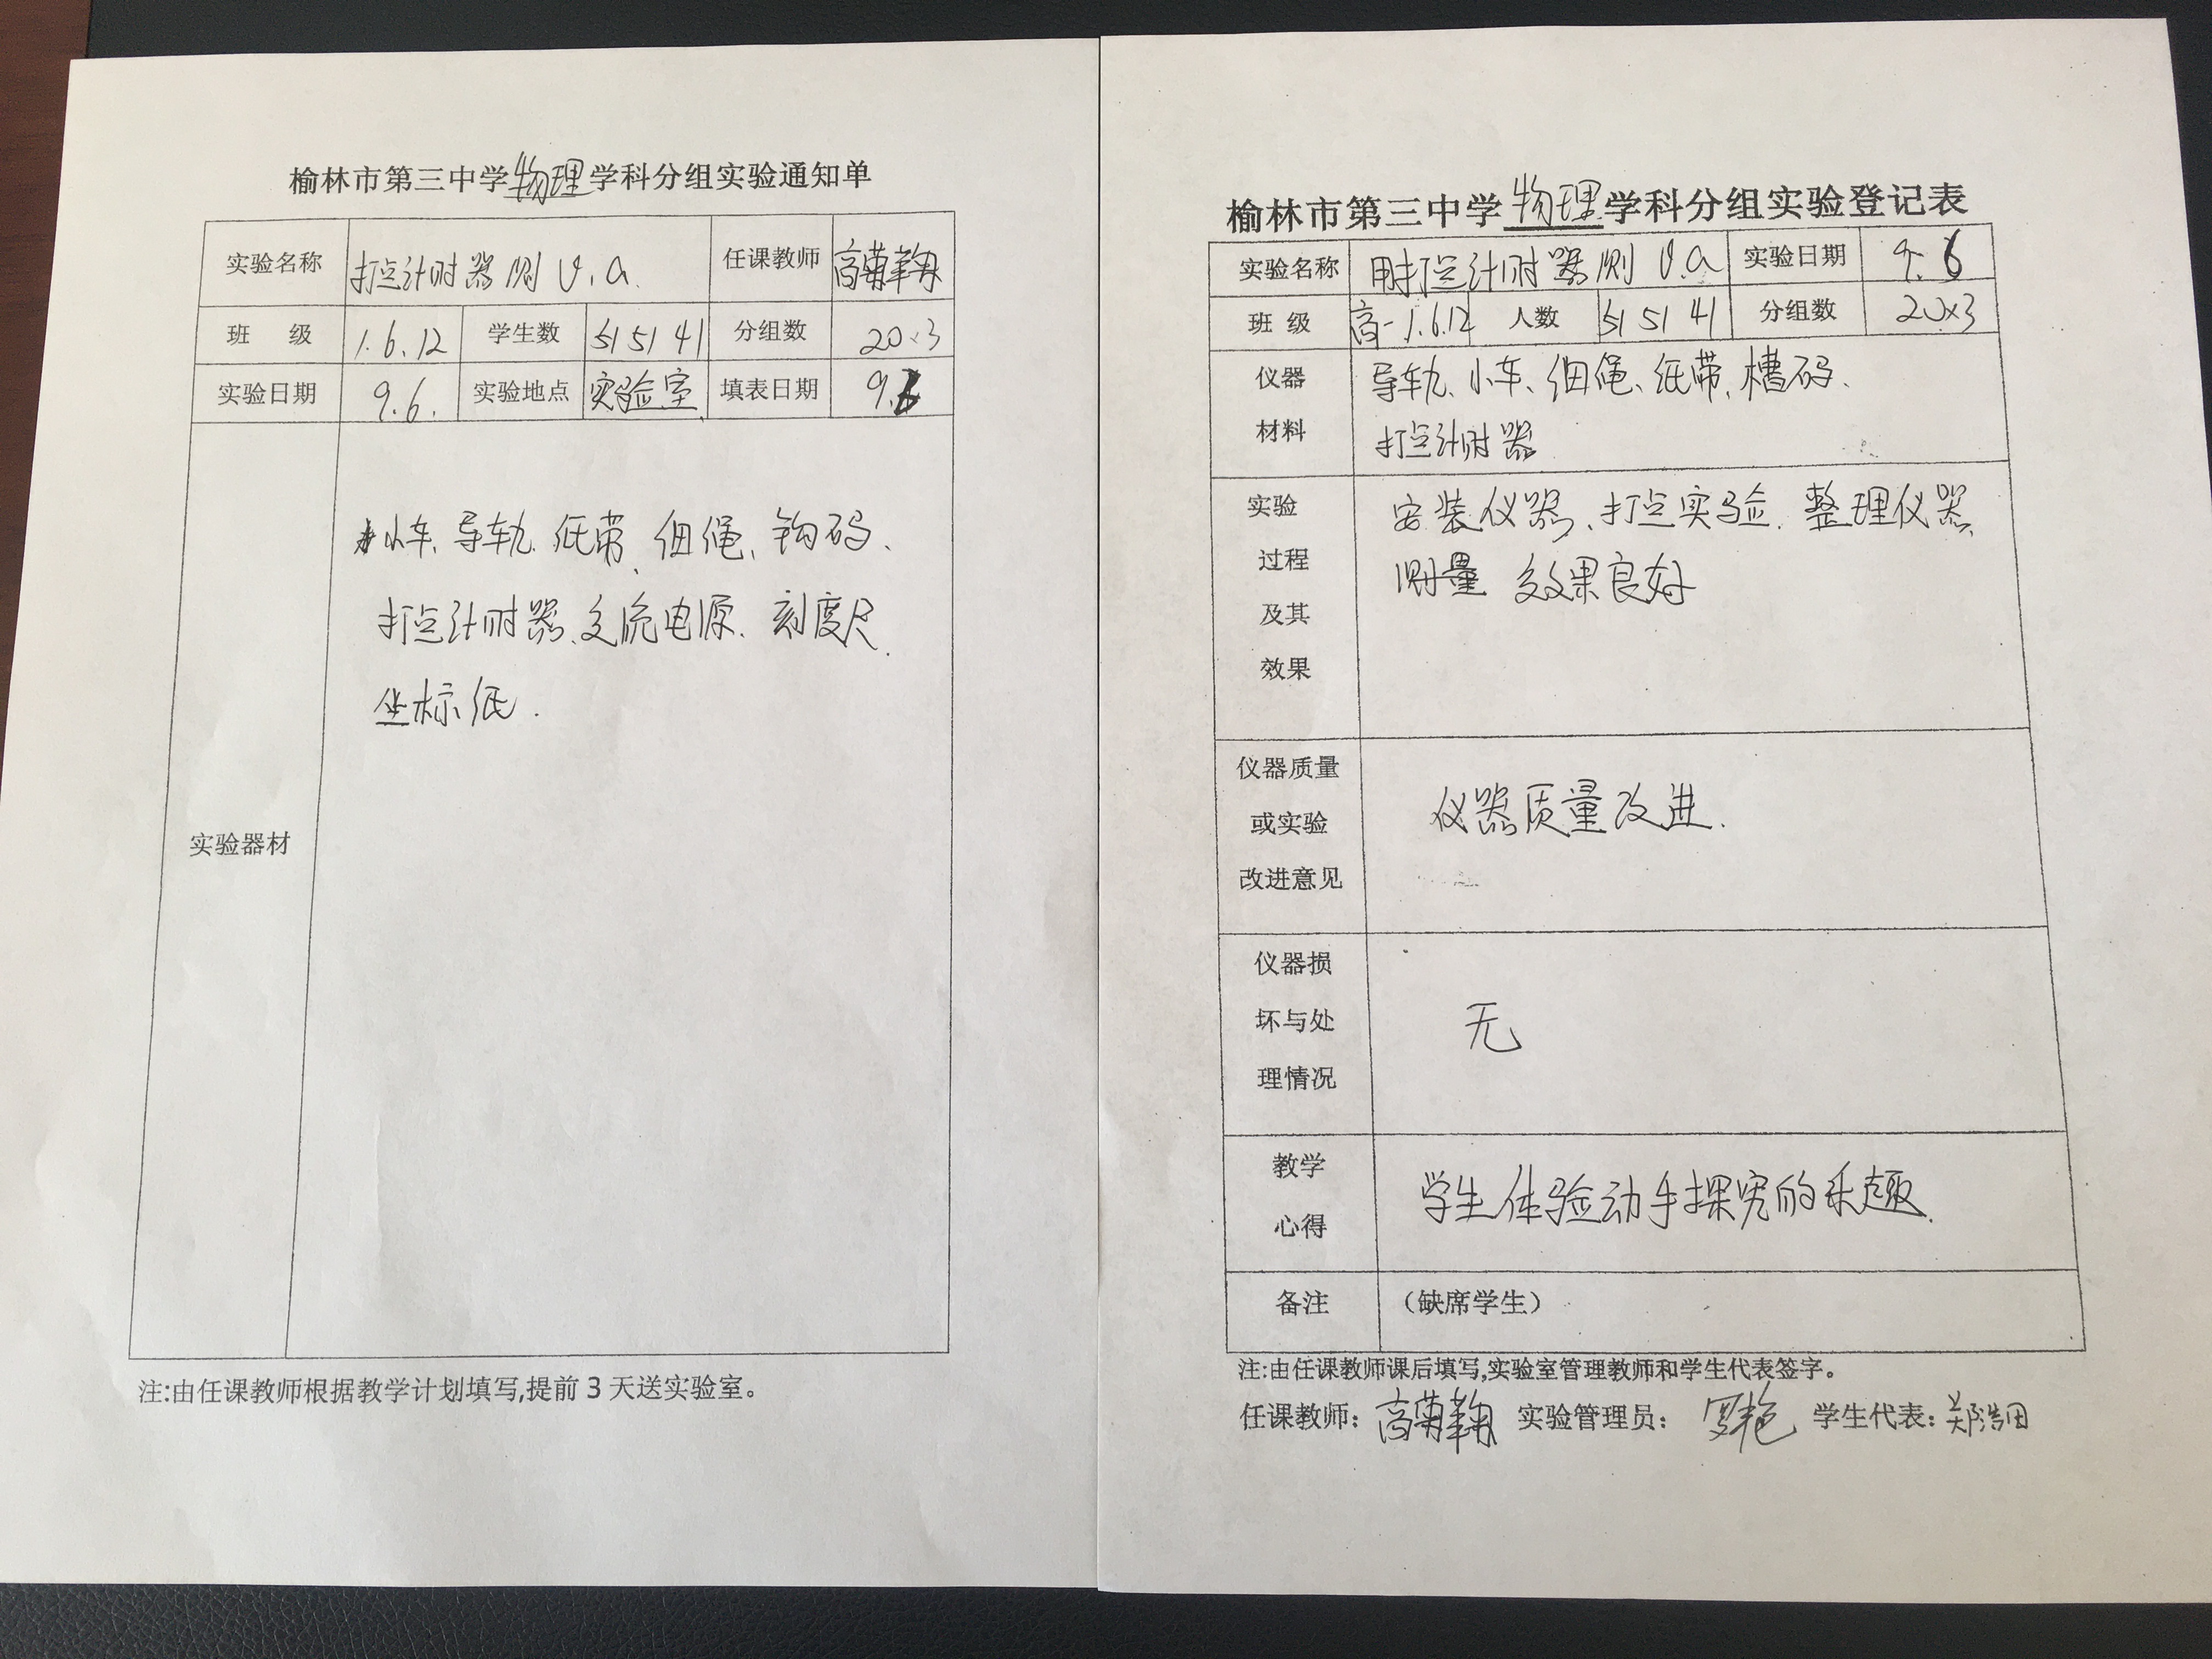 榆林市第三中学物理学科分组实验通知单
实验名称 打点计时器测 v.a. 任课教师
班 级 1.6.12 学生数 51 51 41 分组数 20×3
实验日期 9.6. 实验地点 实验室 填表日期 9.6
实验器材
小车、导轨、纸带、细绳、钩码、
打点计时器、交流电源、刻度尺、
坐标纸.
注:由任课教师根据教学计划填写,提前3天送实验室。
榆林市第三中学物理学科分组实验登记表
实验名称 用打点计时器测 v.a 实验日期 9.6
班 级 高一1.6.12 人数 51 51 41 分组数 20×3
仪器
材料
导轨、小车、细绳、纸带、槽码、
打点计时器
实验
过程
及其
效果
安装仪器、打点实验、整理仪器、
测量 效果良好
仪器质量
或实验
改进意见
仪器质量改进.
仪器损
坏与处
理情况
无
教学
心得
学生体验动手探究的乐趣.
备注 （缺席学生）
注:由任课教师课后填写,实验室管理教师和学生代表签字。
任课教师： 实验管理员： 罗艳 学生代表：郑浩田